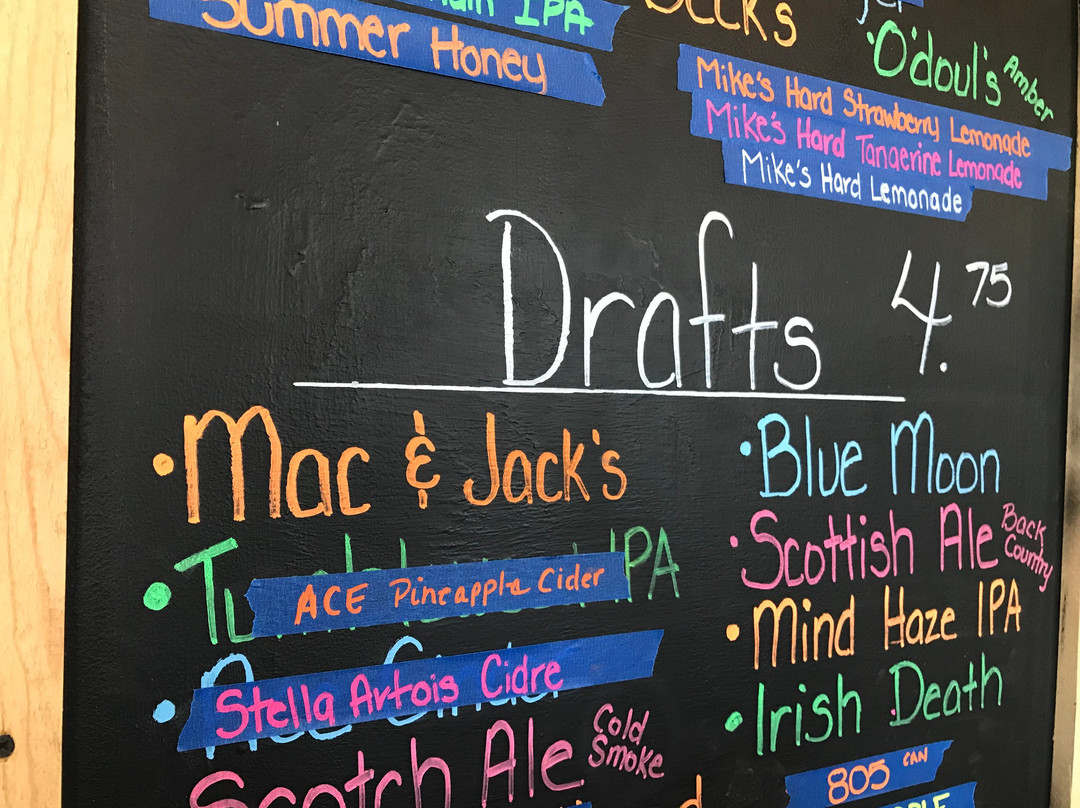 IPA
Summer Honey
O'doul's Amber
Mike's Hard Strawberry Lemonade
Mike's Hard Tangerine Lemonade
Mike's Hard Lemonade
Drafts 4.75
Mac & Jack's
IPA
ACE Pineapple Cider
Stella Artois Cidre
Scotch Ale Cold Smoke
Blue Moon
Scottish Ale Back Country
Mind Haze IPA
Irish Death
805 CAN